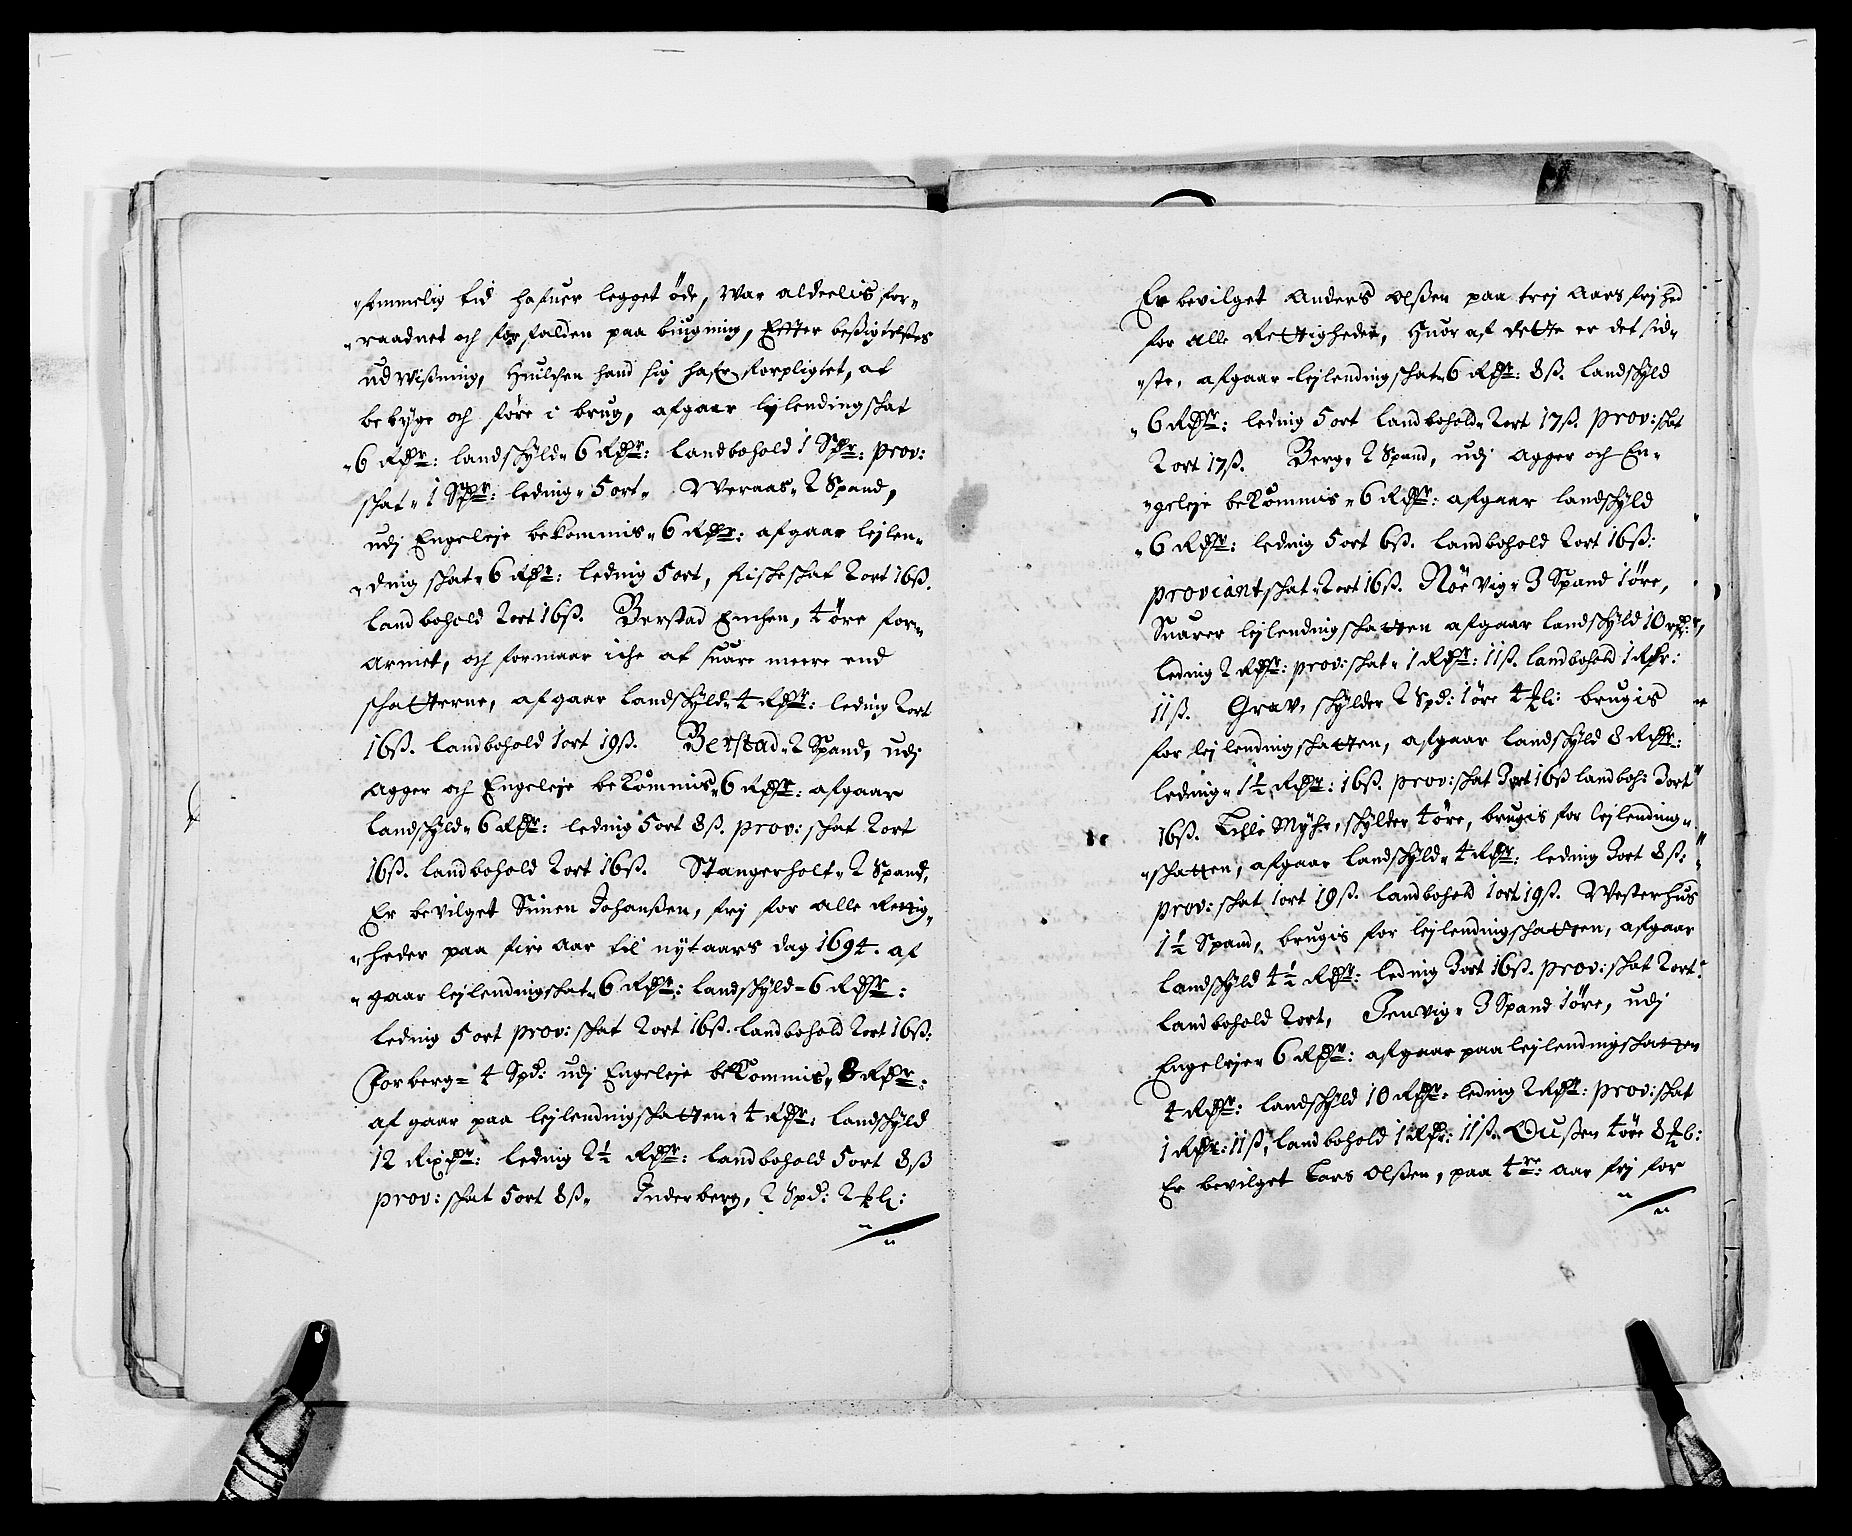 "fommelig tid hafuer legget öde, War aldeelis for„
„raadnet och forfalden paa biugning, Efter besigtelses
udvissning, huilchen hand sig hafr forpligtet, at
bebyge och före i brug, afgaar lejlendingschat
„6 Rdr: landschyld„ 6 Rdr: landbohold 1 Spr: prov:
schat„ 1 Spr: leding„ 5 ort„ Weraas„ 2 Spand,
udj Engeleje bekommis„ 6 Rdr: afgaar lejlen„
„ding schat„ 6 Rdr: leding 5 ort, fischeschat 2 ort 16 ß.
landbohold 2 ort 16 ß. Berstad Enchen, 4 öre for„
armet, och formaar iche at suare meere end
schatterne, afgaar landschyld„ 4 Rdr: leding 2 ort
16 ß. landbohold 1 ort 19 ß. Berstad„ 2 Spand, udj
Agger och Engeleje bekommis„ 6 Rdr: afgaar
landschyld„ 6 Rdr: leding 5 ort 8 ß. prov: schat 2 ort
16 ß. landbohold 2 ort 16 ß. Stangerholt„ 2 Spand,
Er bevilget Simen Johanßen, frj for alle Rettig„
„heder paa fire aar til nytaars dag 1694. af
„gaar lejlendingschat„ 6 Rdr: landschyld„ 6 Rdr:
leding 5 ort prov: schat 2 ort 16 ß. landbohold 2 ort 16 ß:
Jorberg= 4 Spd: udj Engeleje bekommis„ 8 Rdr:
afgaar paa lejlendingschatten„ 4 Rdr: landschyld
12 Rixdr: leding 2½ Rdr: landbohold 5 ort 8 ß
prov: schat 5 ort 8 ß„ Inderberg, 2 Spd: 2
Er bevilget Anders Olßen paa trej Aars frjhed
for alle Rettigheder, huoraf dette er det sid„
„ste, afgaar lejlendingschat„ 6 Rdr: 8 ß. landschyld
„6 Rdr: leding 5 ort landbohold„ 2 ort 17 ß. prov: schat
2 ort 17 ß. Berg„ 2 Spand, udj Agger och En„
„geleje bekommis„ 6 Rdr: afgaar landschyld
„6 Rdr: leding 5 ort 6 ß. landbohold 2 ort 16 ß:
proviantschat„ 2 ort 16 ß. Nöe Vig„ 3 Spand 1 öre,
Suarer lejlendingschatten afgaar landschyld 10 rdr:
leding 2 Rdr: prov: schat„ 1 Rdr: 11 ß. landbohold 1 Rdr:
11 ß. Grav, schylder 2 Spd: 1 öre 4 brugis
for lejlendingschatten, afgaar landschyld 8 Rdr:
leding„ 1½ Rdr: 16 ß. prov: schat 3 ort 16 ß landboh: 3 ort
16 ß. Lille Myhr, schylder 4 öre, brugis for lejlending„
„schatten, afgaar landschyld„ 4 Rdr: leding 3 ort 8 ß:
prov: schat 1 ort 19 ß. landbohold 1 ort 19 ß. Westerhus
1½ Spand, brugis for lejlendingschatten, afgaar
landschyld 4½ Rdr: leding 3 ort 16 ß. prov: schat 2 ort:
landbohold 2 ort, Jenvig„ 3 Spand 1 öre, udj
Engelejer 6 Rdr: afgaar paa lejlendingschatten
4 Rdr: landschyld 10 Rdr: leding 2 Rdr: prov: schat
1 Rdr: 11 ß, landbohold 1 Rdr: 11 ß. Oußen 4 öre 8
Er bevilget Lars Olßen, paa 4re: aar frj for